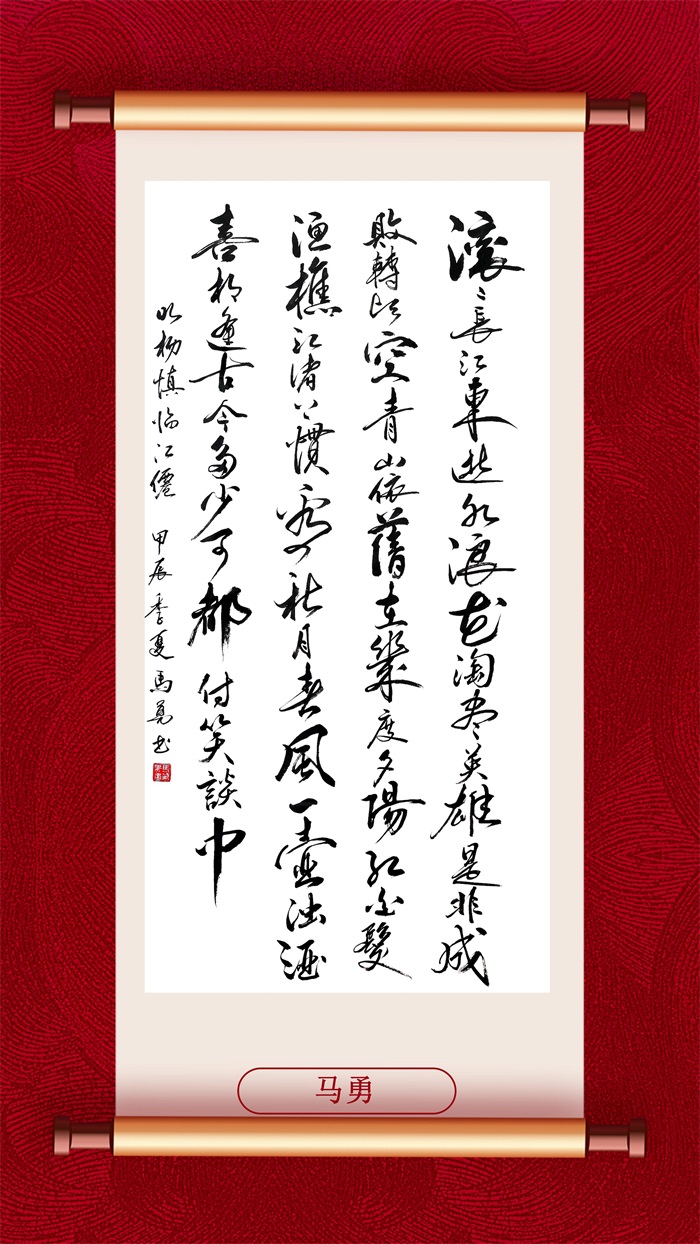 滚〻長江東逝水浪花淘尽英雄是非成
敗轉头空青山依舊在幾度夕陽红白髮
渔樵江渚上慣看秋月春風一壺浊酒
喜相逢古今多少事都付笑談中
明杨慎临江僊 甲辰季夏馬勇书
马勇